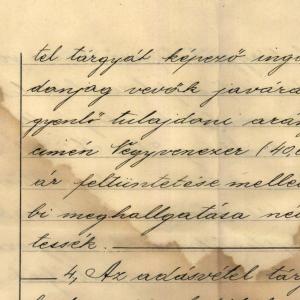 tel tárgyát képező ing
danjog vevők javára
gyenlő tulajdoni arán
címén Négyvenezer (40.0
ár feltüntetése melle
bi meghallgatása né
tessék.
4, Az adásvétel tár